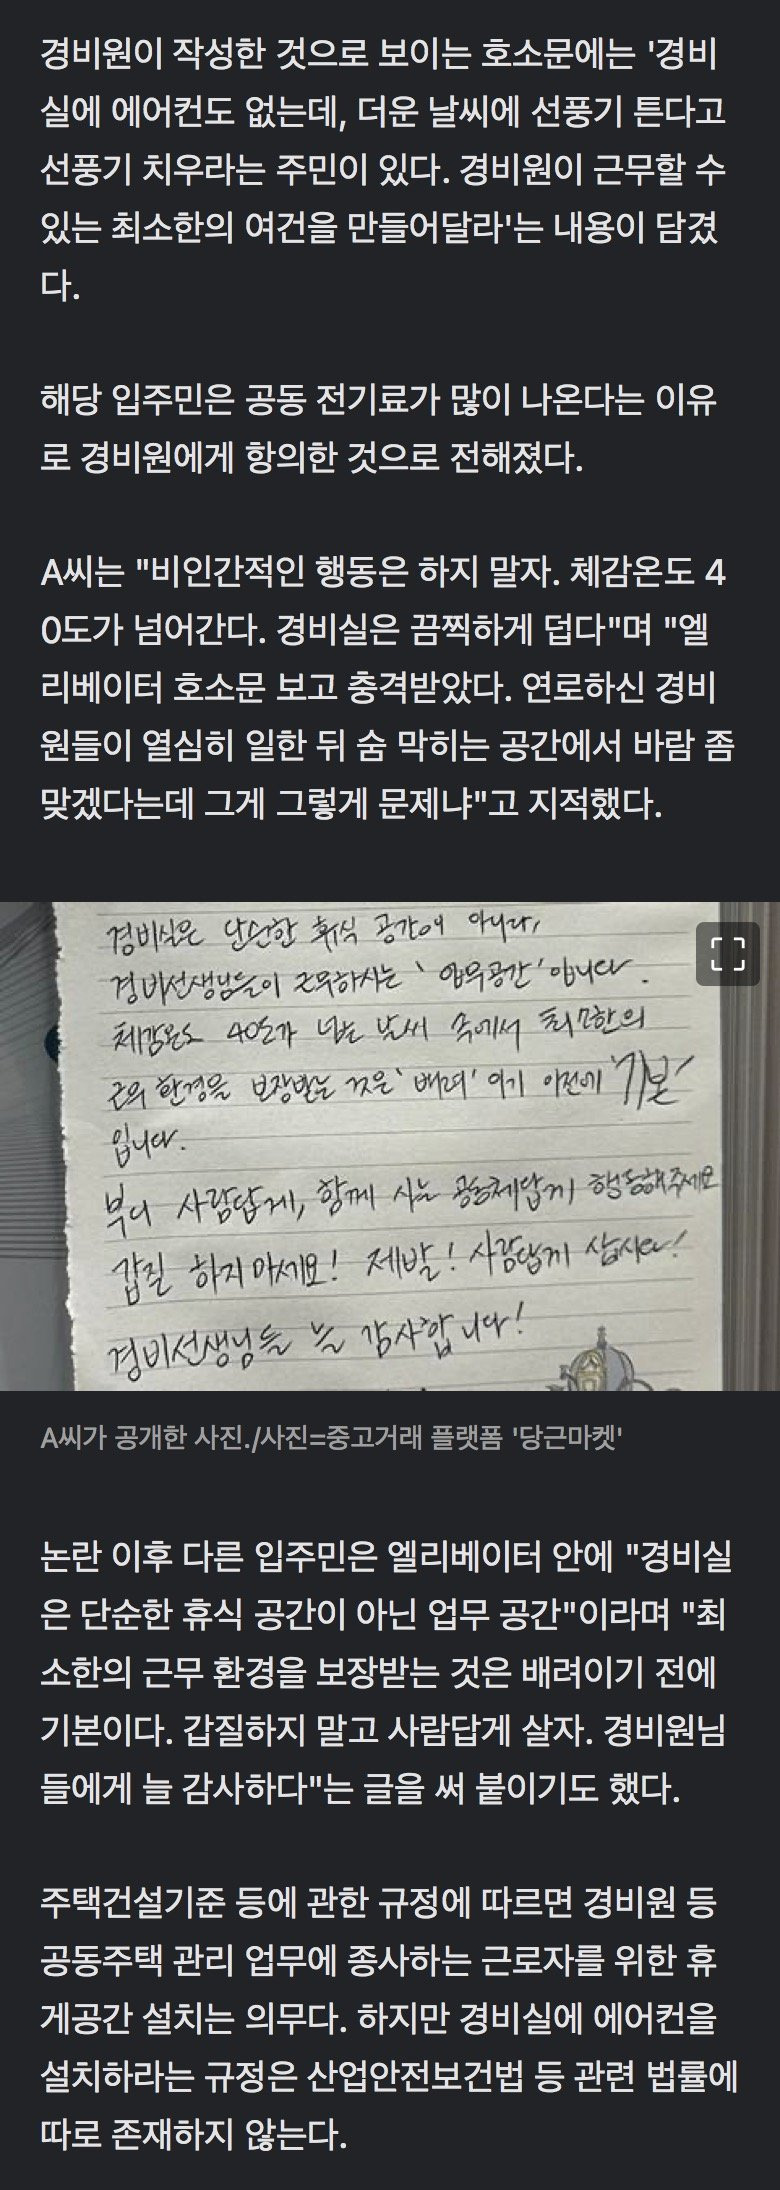 경비원이 작성한 것으로 보이는 호소문에는 '경비
실에 에어컨도 없는데, 더운 날씨에 선풍기 튼다고
선풍기 치우라는 주민이 있다. 경비원이 근무할 수
있는 최소한의 여건을 만들어달라'는 내용이 담겼
다.
해당 입주민은 공동 전기료가 많이 나온다는 이유
로 경비원에게 항의한 것으로 전해졌다.
A씨는 "비인간적인 행동은 하지 말자. 체감온도 4
0도가 넘어간다. 경비실은 끔찍하게 덥다"며 "엘
리베이터 호소문 보고 충격받았다. 연로하신 경비
원들이 열심히 일한 뒤 숨 막히는 공간에서 바람 좀
맞겠다는데 그게 그렇게 문제냐"고 지적했다.
경비실은 단순한 휴식 공간이 아니라,
경비선생님들이 근무하시는 '업무공간'입니다.
체감온도 40도가 넘는 날씨 속에서 최소한의
근무 환경을 보장받는 것은 '배려'이기 이전에 '기본'
입니다.
부디 사람답게, 함께 사는 공동체답게 행동해주세요
갑질 하지마세요! 제발! 사람답게 삽시다!
경비선생님들 늘 감사합니다!
A씨가 공개한 사진./사진=중고거래 플랫폼 '당근마켓'
논란 이후 다른 입주민은 엘리베이터 안에 "경비실
은 단순한 휴식 공간이 아닌 업무 공간"이라며 "최
소한의 근무 환경을 보장받는 것은 배려이기 전에
기본이다. 갑질하지 말고 사람답게 살자. 경비원님
들에게 늘 감사하다"는 글을 써 붙이기도 했다.
주택건설기준 등에 관한 규정에 따르면 경비원 등
공동주택 관리 업무에 종사하는 근로자를 위한 휴
게공간 설치는 의무다. 하지만 경비실에 에어컨을
설치하라는 규정은 산업안전보건법 등 관련 법률에
따로 존재하지 않는다.